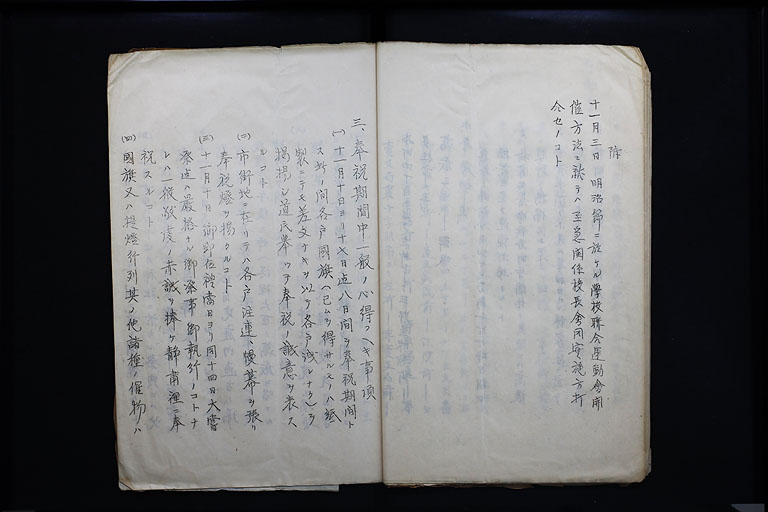 十一月三日 明治節ニ於ケル學校聯合運動會開
催方法ニ就テハ至急関係校長會同実施方打
合セノコト
三、奉祝期間中一般ノ心得フヘキ事項
(一)十一月十日ヨリ十七日迄八日間ヲ奉祝期間ト
ス此ノ間各戸國旗(已ムヲ得サルモノハ紙
製ニテモ差支ナキヲ以テ各戸洩レナク)ヲ
掲揚シ道民挙ツテ奉祝ノ誠意ヲ表ス
ルコト
(二)市街地ニ在リテハ各戸注連、幔幕ヲ張リ
奉祝燈ヲ掲クルコト
(三)十一月十日御即位禮當日ヨリ同十四日大嘗
祭迄ハ最格ナル御祭事御執行ノコトナ
レハ一般敬虔ノ赤誠ヲ捧ケ静肅裡ニ奉
祝スルコト
(四)國旗又ハ提燈行列其ノ他諸種ノ催物ハ